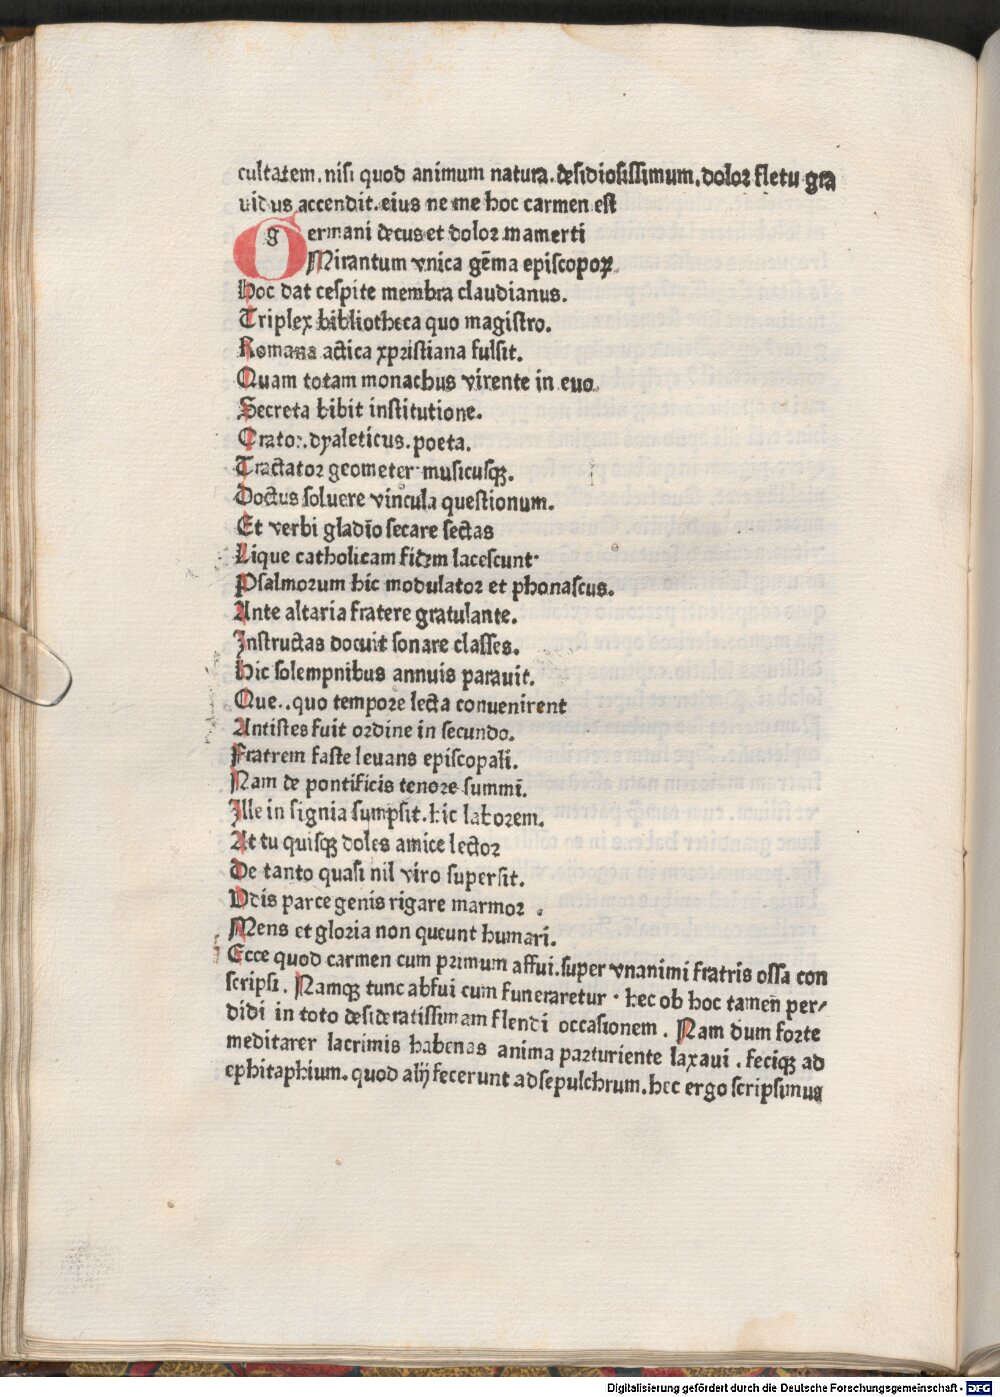 cultatem. nisi quod animum natura. desidiosissimum. dolor fletu gra
uidus accendit. eius ne me hoc carmen est
germani decus et dolor mamerti
Mirantum vnica gēma episcopoꝝ.
Hoc dat cespite membra claudianus.
Triplex bibliotheca quo magistro.
Romana actica xpristiana fulsit.
Quam totam monachus virente in euo.
Secreta bibit institutione.
Orator. dyaleticus. poeta.
Tractator geometer musicusqꝫ.
Doctus soluere vincula questionum.
Et verbi gladio secare sectas
Lique catholicam fidem lacescunt.
Psalmorum hic modulator et phonascus.
Ante altaria fratere gratulante.
Instructas docuit sonare classes.
Hic solempnibus annuis parauit.
Que.. quo tempore lecta conuenirent
Antistes fuit ordine in secundo.
Fratrem faste leuans episcopali.
Nam de pontificis tenore summi.
Ille in signia sumpsit. hic laborem.
At tu quisqꝫ doles amice lector
De tanto quasi nil viro supersit.
Vdis parce genis rigare marmor.
Mens et gloria non queunt humari.
Ecce quod carmen cum primum affui. super vnanimi fratris ossa con
scripsi. Namqꝫ tunc abfui cum funeraretur. hec ob hoc tamen̄ per⸗
didi in toto desideratissimam flendi occasionem. Nam dum forte
meditarer lacrimis habenas anima parturiente laxaui. feciqꝫ ad
ephitaphium. quod alij fecerunt ad sepulchrum. hec ergo scripsimus
Digitalisierung gefördert durch die Deutsche Forschungsgemeinschaft - DFG